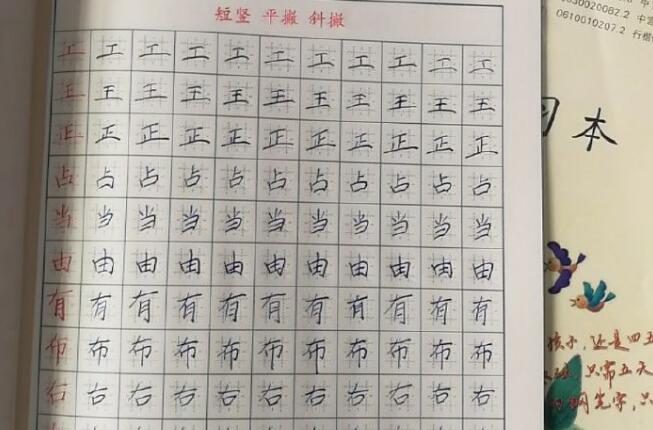 短竖 平撇 斜撇
工 工 工 工 工 工 工 工 工 工 工
王 王 王 王 王 王 王 王 王 王 王
正 正 正 正 正 正 正 正 正 正 正
占 占 占 占 占 占 占 占 占 占 占
当 当 当 当 当 当 当 当 当 当 当
由 由 由 由 由 由 由 由 由 由 由
有 有 有 有 有 有 有 有 有 有 有
布 布 布 布 布 布 布 布 布 布 布
右 右 右 右 右 右 右 右 右 右 右
0610010207.2 行楷
本
孩子,还是四五
只需五天
钢笔字,只